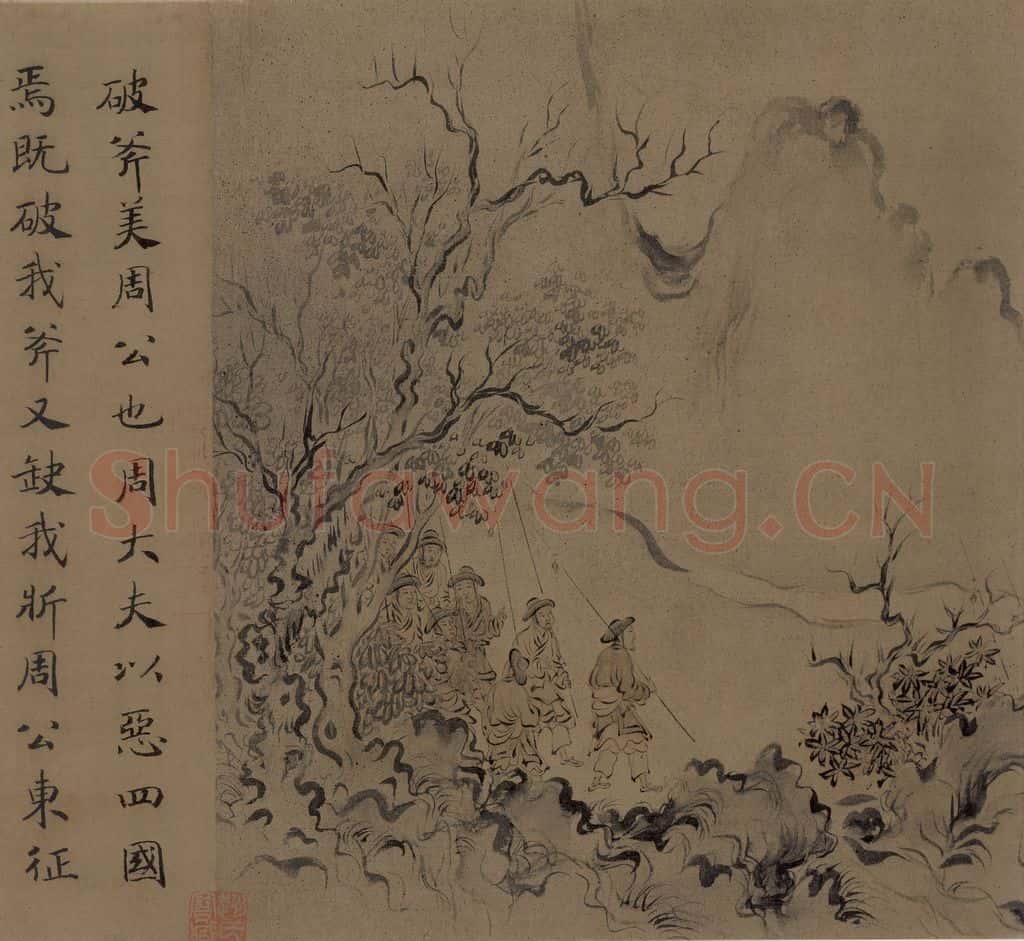 破斧美周公也周大夫以惡四國
焉既破我斧又缺我斨周公東征
Shufawang.CN